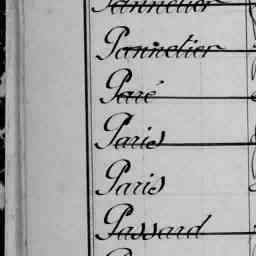 Pannetier
Pannetier
Paré
Paris
Paris
Passard